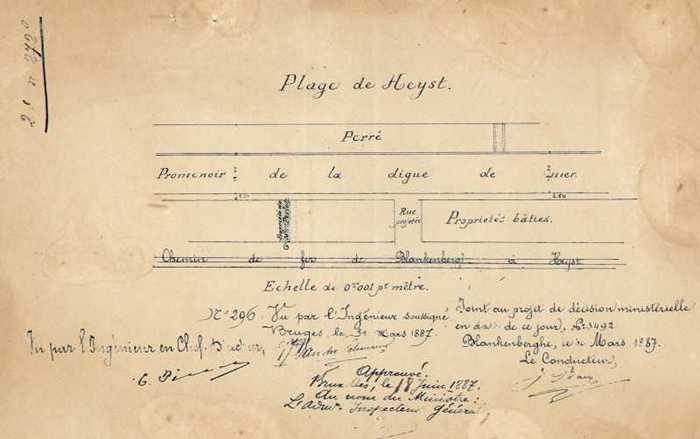 2.¹ n° 2790
Plage de Heyst.
Perré
Promenoir de la digue de mer
2.50 2.50
Rue projetée
Propriétés bâties.
Chemin de fer de Blankenberghe à Heyst
Echelle de 0ᵐ001 pʳ mètre.
N° 296. Vu par l'Ingénieur soussigné
Bruges le Mars 1887.
Joint au projet de décision ministérielle
en date de ce jour, N° 3492
Blankenberghe, le Mars 1887.
Le Conducteur,
Vu par l'Ingénieur en Chef Directeur,
Approuvé:
Bruxelles, le 18 Juin 1887.
Au nom du Ministre:
Inspecteur Général,